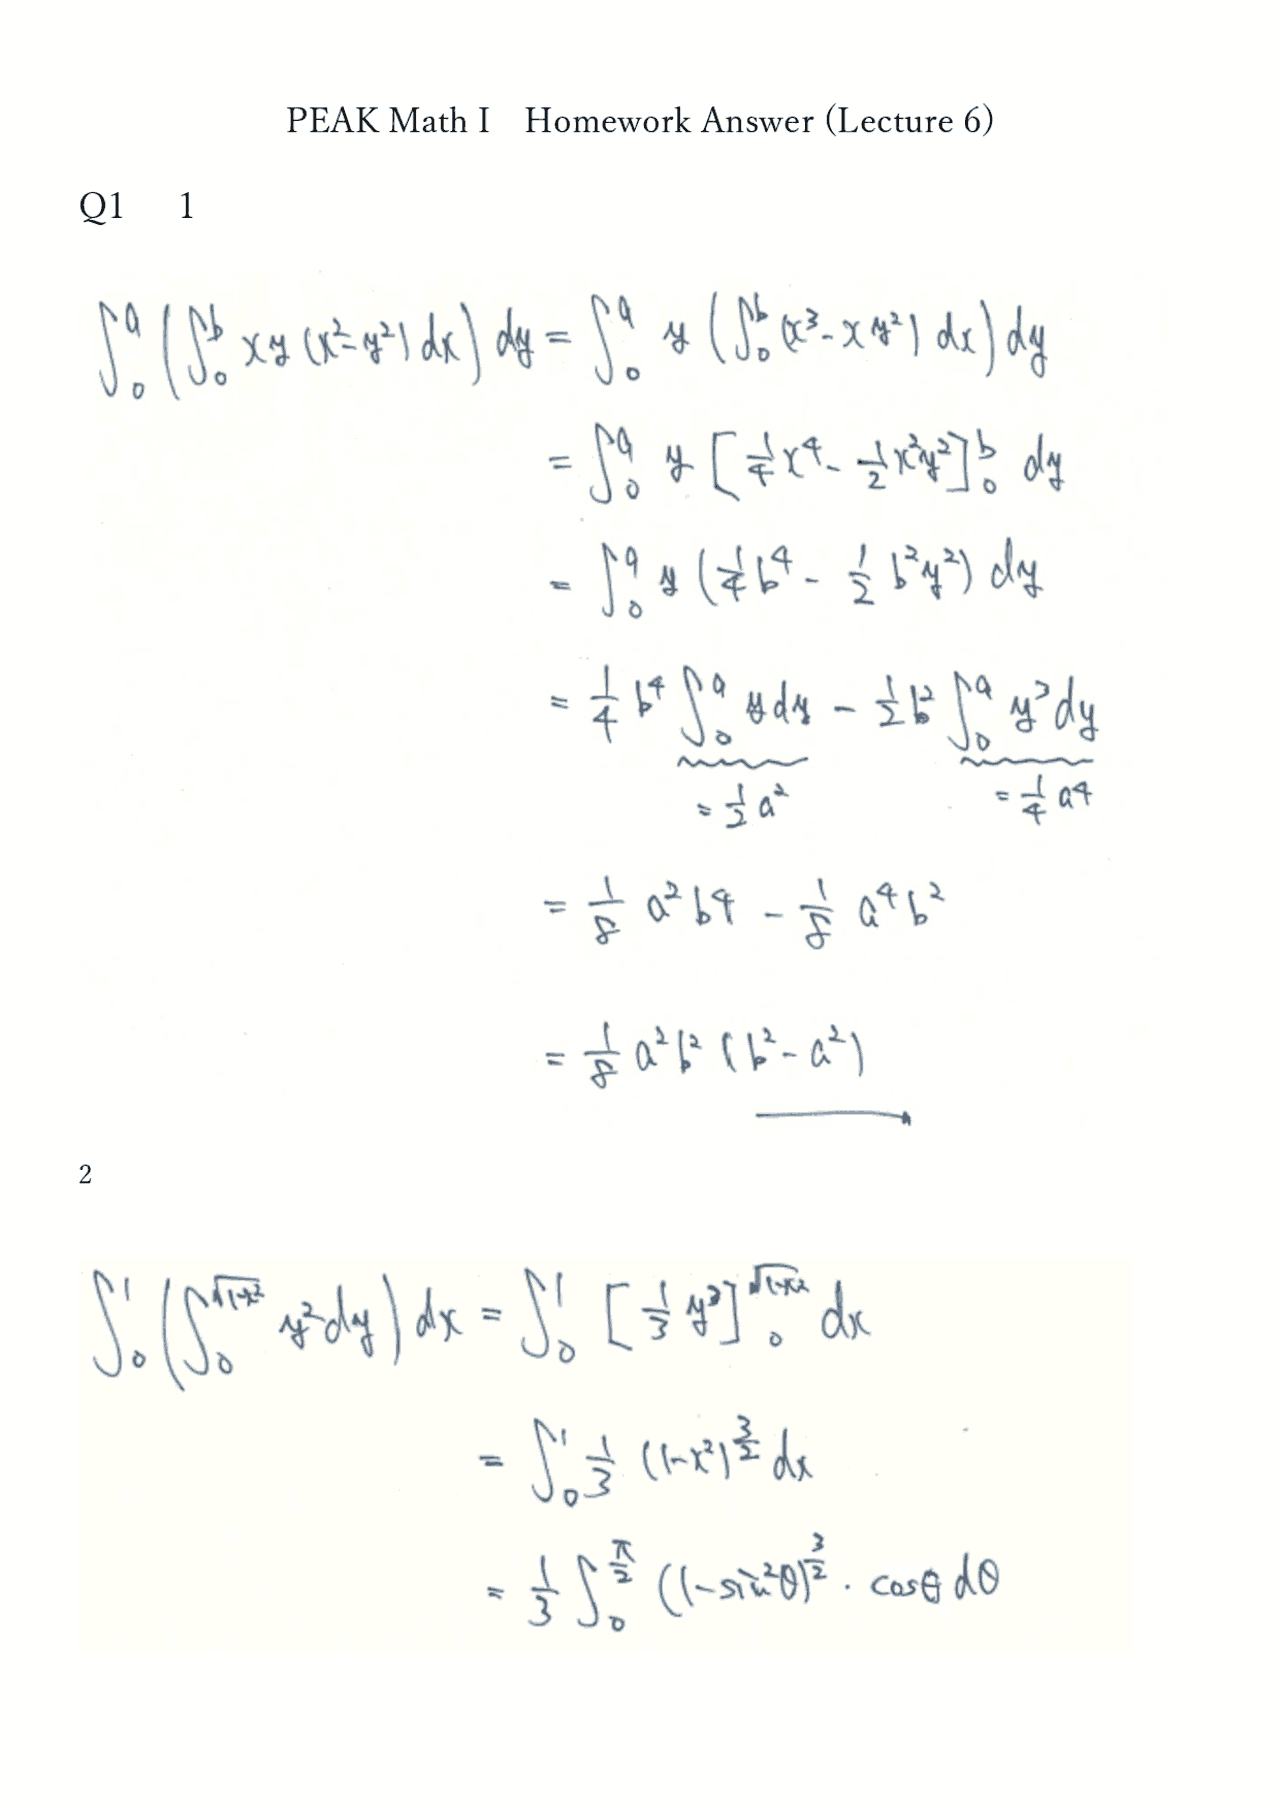 PEAK Math I Homework Answer (Lecture 6)
Q1 1
∫₀ᵃ (∫₀ᵇ xy (x²-y²) dx) dy = ∫₀ᵃ y (∫₀ᵇ (x³-xy²) dx) dy
= ∫₀ᵃ y [1/4 x⁴ - 1/2 x²y²]₀ᵇ dy
= ∫₀ᵃ y (1/4 b⁴ - 1/2 b²y²) dy
= 1/4 b⁴ ∫₀ᵃ y dy - 1/2 b² ∫₀ᵃ y³ dy
= 1/2 a² = 1/4 a⁴
= 1/8 a² b⁴ - 1/8 a⁴ b²
= 1/8 a² b² (b² - a²)
2
∫₀¹ (∫₀^√(1-x²) y² dy) dx = ∫₀¹ [1/3 y³]₀^√(1-x²) dx
= ∫₀¹ 1/3 (1-x²)^(3/2) dx
= 1/3 ∫₀^(π/2) (1-sin²θ)^(3/2) · cosθ dθ